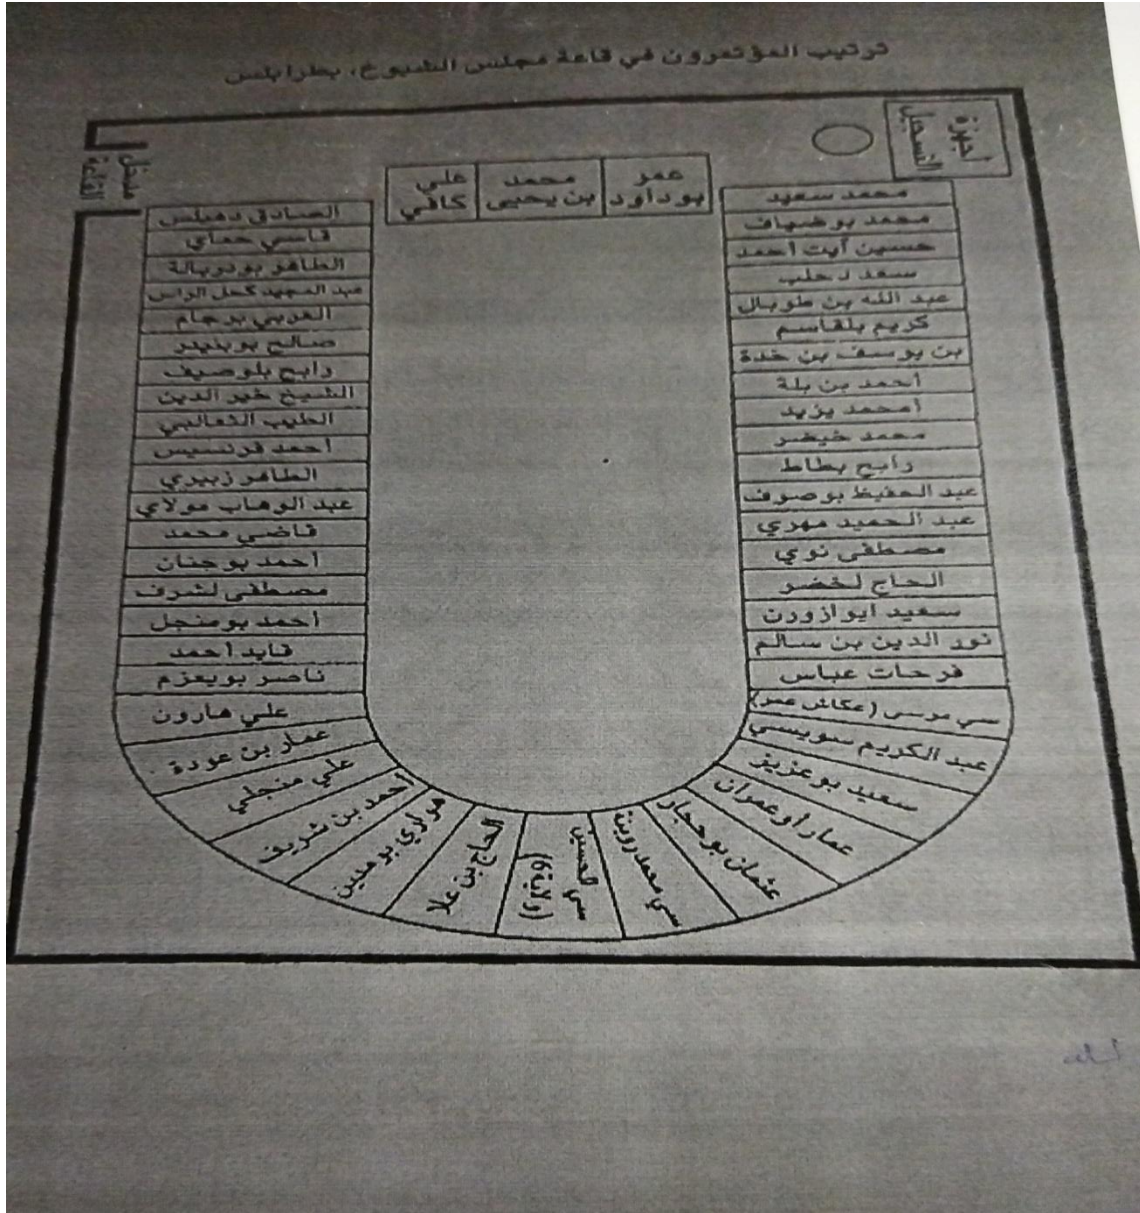 ترتيب المؤتمرون في قاعة مجلس الشيوخ، بطرابلس
أجهزة
التسجيل
مدخل
القاعة
عمر
بوداود
محمد
بن يحيى
علي
كافي
محمد سعيد
محمد بوضياف
حسين آيت أحمد
سعد دحلب
عبد الله بن طوبال
كريم بلقاسم
بن يوسف بن خدة
أحمد بن بلة
أمحمد يزيد
محمد خيضر
رابح بطاط
عبد الحفيظ بوصوف
عبد الحميد مهري
مصطفى نوي
الحاج لخضر
سعيد ايوازورن
نور الدين بن سالم
فرحات عباس
سي مرسى (عكاش عمر)
عبد الكريم سويسي
سعيد بوعزيز
عمار أوعمران
عثمان بوحجار
سي محمد روينة
سي لحسين
(ولاية 6)
الحاج بن علا
هواري بومدين
أحمد بن شريف
علي منجلي
عمار بن عودة
علي هارون
ناصر بويعزم
قايد أحمد
أحمد بومنجل
مصطفى لشرف
أحمد بوجنان
قاضي محمد
عبد الوهاب مولاي
الطاهر زبيري
أحمد فرنسيس
الطيب الثعالبي
الشيخ خير الدين
رابح بلوصيف
صالح بوبنيدر
العربي برجام
عبد المجيد كحل الراس
الطاهر بودربالة
قاسي حماي
الصادق دهيلس